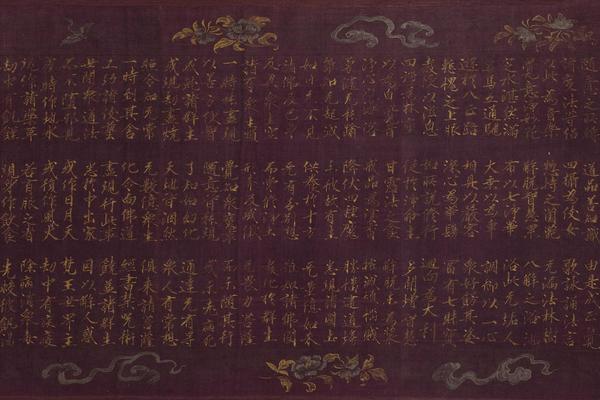 隨意之所轉 道品善知識 由是成正覺
諸度法等侶 四攝為伎女 歌詠誦法言
以此為音樂 總持之園苑 無漏法林樹
覺意淨妙花 解脫智慧果 八解之浴池
定水湛然滿 布以七淨華 浴此無垢人
象馬五通馳 大乘以為車 調御以一心
遊於八正路 相具以嚴容 眾好飾其姿
慚愧之上服 深心為華鬘 富有七財寶
教授以滋息 如所說修行 迴向為大利
四禪為床座 從於淨命生 多聞增智慧
以為自覺音 甘露法之食 解脫味為漿
淨心以澡浴 戒品為塗香 摧滅煩惱賊
勇健無能踰 降伏四種魔 勝幡建道場
雖知無起滅 示彼故有生 悉現諸國土
如日無不見 供養於十方 无量億如來
諸佛及己身 无有分別想 雖知諸佛國
及與眾生空 而常修淨土 教化於群生
諸有眾生類 形聲及威儀 无畏力菩薩
一時能盡現 覺知眾魔事 而示隨其行
以善方便智 隨意皆能現 或示老病死
成就諸群生 了知如幻化 通達无有礙
或現劫盡燒 天地皆洞然 眾人有常想
照令知无常 无數億眾生 俱來請菩薩
一時到其舍 化令向佛道 經書禁咒術
工巧諸伎藝 盡現行此事 饒益諸群生
世間眾道法 悉於中出家 因以解人惑
而不墮邪見 或作日月天 梵王世界主
或時作地水 或復作風火 劫中有疾疫
現作諸藥草 若有服之者 除病消眾毒
劫中有飢饉 現身作飲食 先救彼飢渴